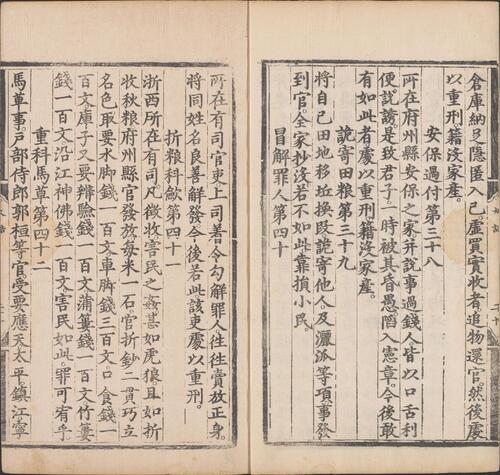 倉庫納及隱匿入己。虛買實收者追物還官。然後處
以重刑籍沒家產。
安保過付第三十八
所在府州縣安保之家并說事過錢人皆以口舌利
便說是致君子一時被其昏愚陷入憲章。今後敢
有如此者處以重刑籍沒家產。
詭寄田粮第三十九
將自己田地移坵換段詭寄他人及灑派等項事發
到官。全家抄沒若不如此靠損小民。
冒解罪人第四十
所在有司官吏上司著令勾解罪人往往賣放正身。
將同姓名良善解發今後若此該吏處以重刑。
折粮科斂第四十一
浙西所在有司。凡徵收害民之姦甚如虎狼。且如折
收秋粮府州縣官發放每米一石官折鈔二貫巧立
名色取要水脚錢一百文車脚錢三百文口食錢一
百文庫子又要辨驗錢一百文蒲簍錢一百文竹簍
錢一百文沿江神佛錢一百文害民如此。罪可宥乎
重科馬草第四十二
馬草事。戶部侍郎郭桓等官受要應天太平。鎮江寧